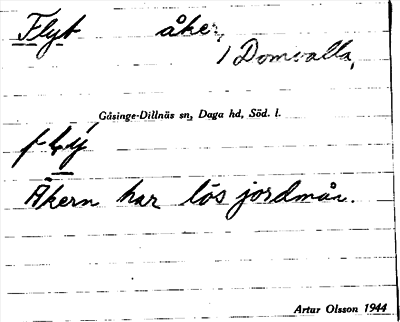 Flyt åker,
/ Domvalla,
Gåsinge-Dillnäs sn, Daga hd, Söd. l.
Åkern har lös jordmån.
Artur Olsson 1944